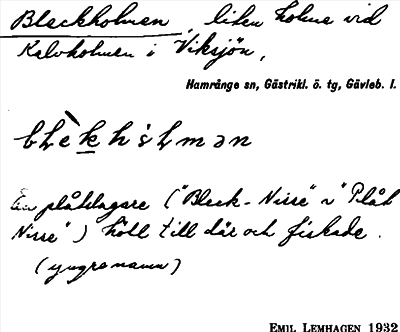 Bleckholmen, liten holme vid
Kalvholmen i Viksjön,
Hamrånge sn, Gästrikl. ö. tg, Gävleb. l.
En plåtslagare ("Bleck-Nisse" n "Plåt
Nisse") höll till där och fiskade.
(yngre namn)
EMIL LEMHAGEN 1932